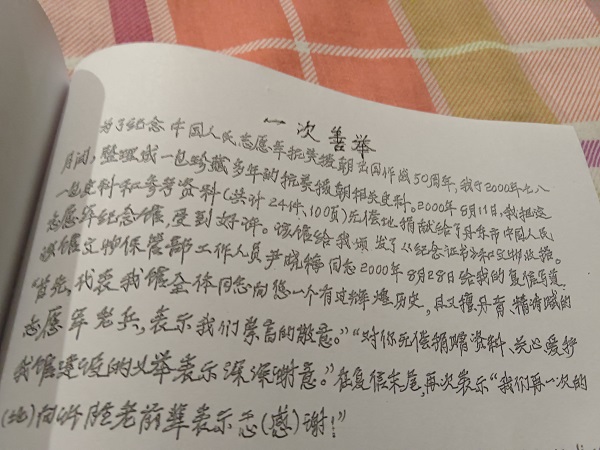 一次善举
为了纪念中国人民志愿军抗美援朝出国作战50周年，我于2000年七八
月间，整理成一包珍藏多年的抗美援朝相关史料。2000年8月11日，我把这
一包史料和等资料（共计24件、100页）无偿地捐献给了丹东市中国人民
志愿军纪念馆，受到好评。该馆给我颁发了《纪念证书》和文物收据。
该馆文物保管部工作人员尹晓梅同志2000年8月28日给我的复信写道：
“首先，代表我馆全体同志向您一个有过辉煌历史，且又擅丹青、精诗赋的
志愿军老兵，表示我们崇高的敬意。”“对你无偿捐赠资料、关心爱护
我馆建设的义举表示深深谢意。”在复信末尾，再次表示“我们再一次的
（地）向许老前辈表示忐（感）谢！”